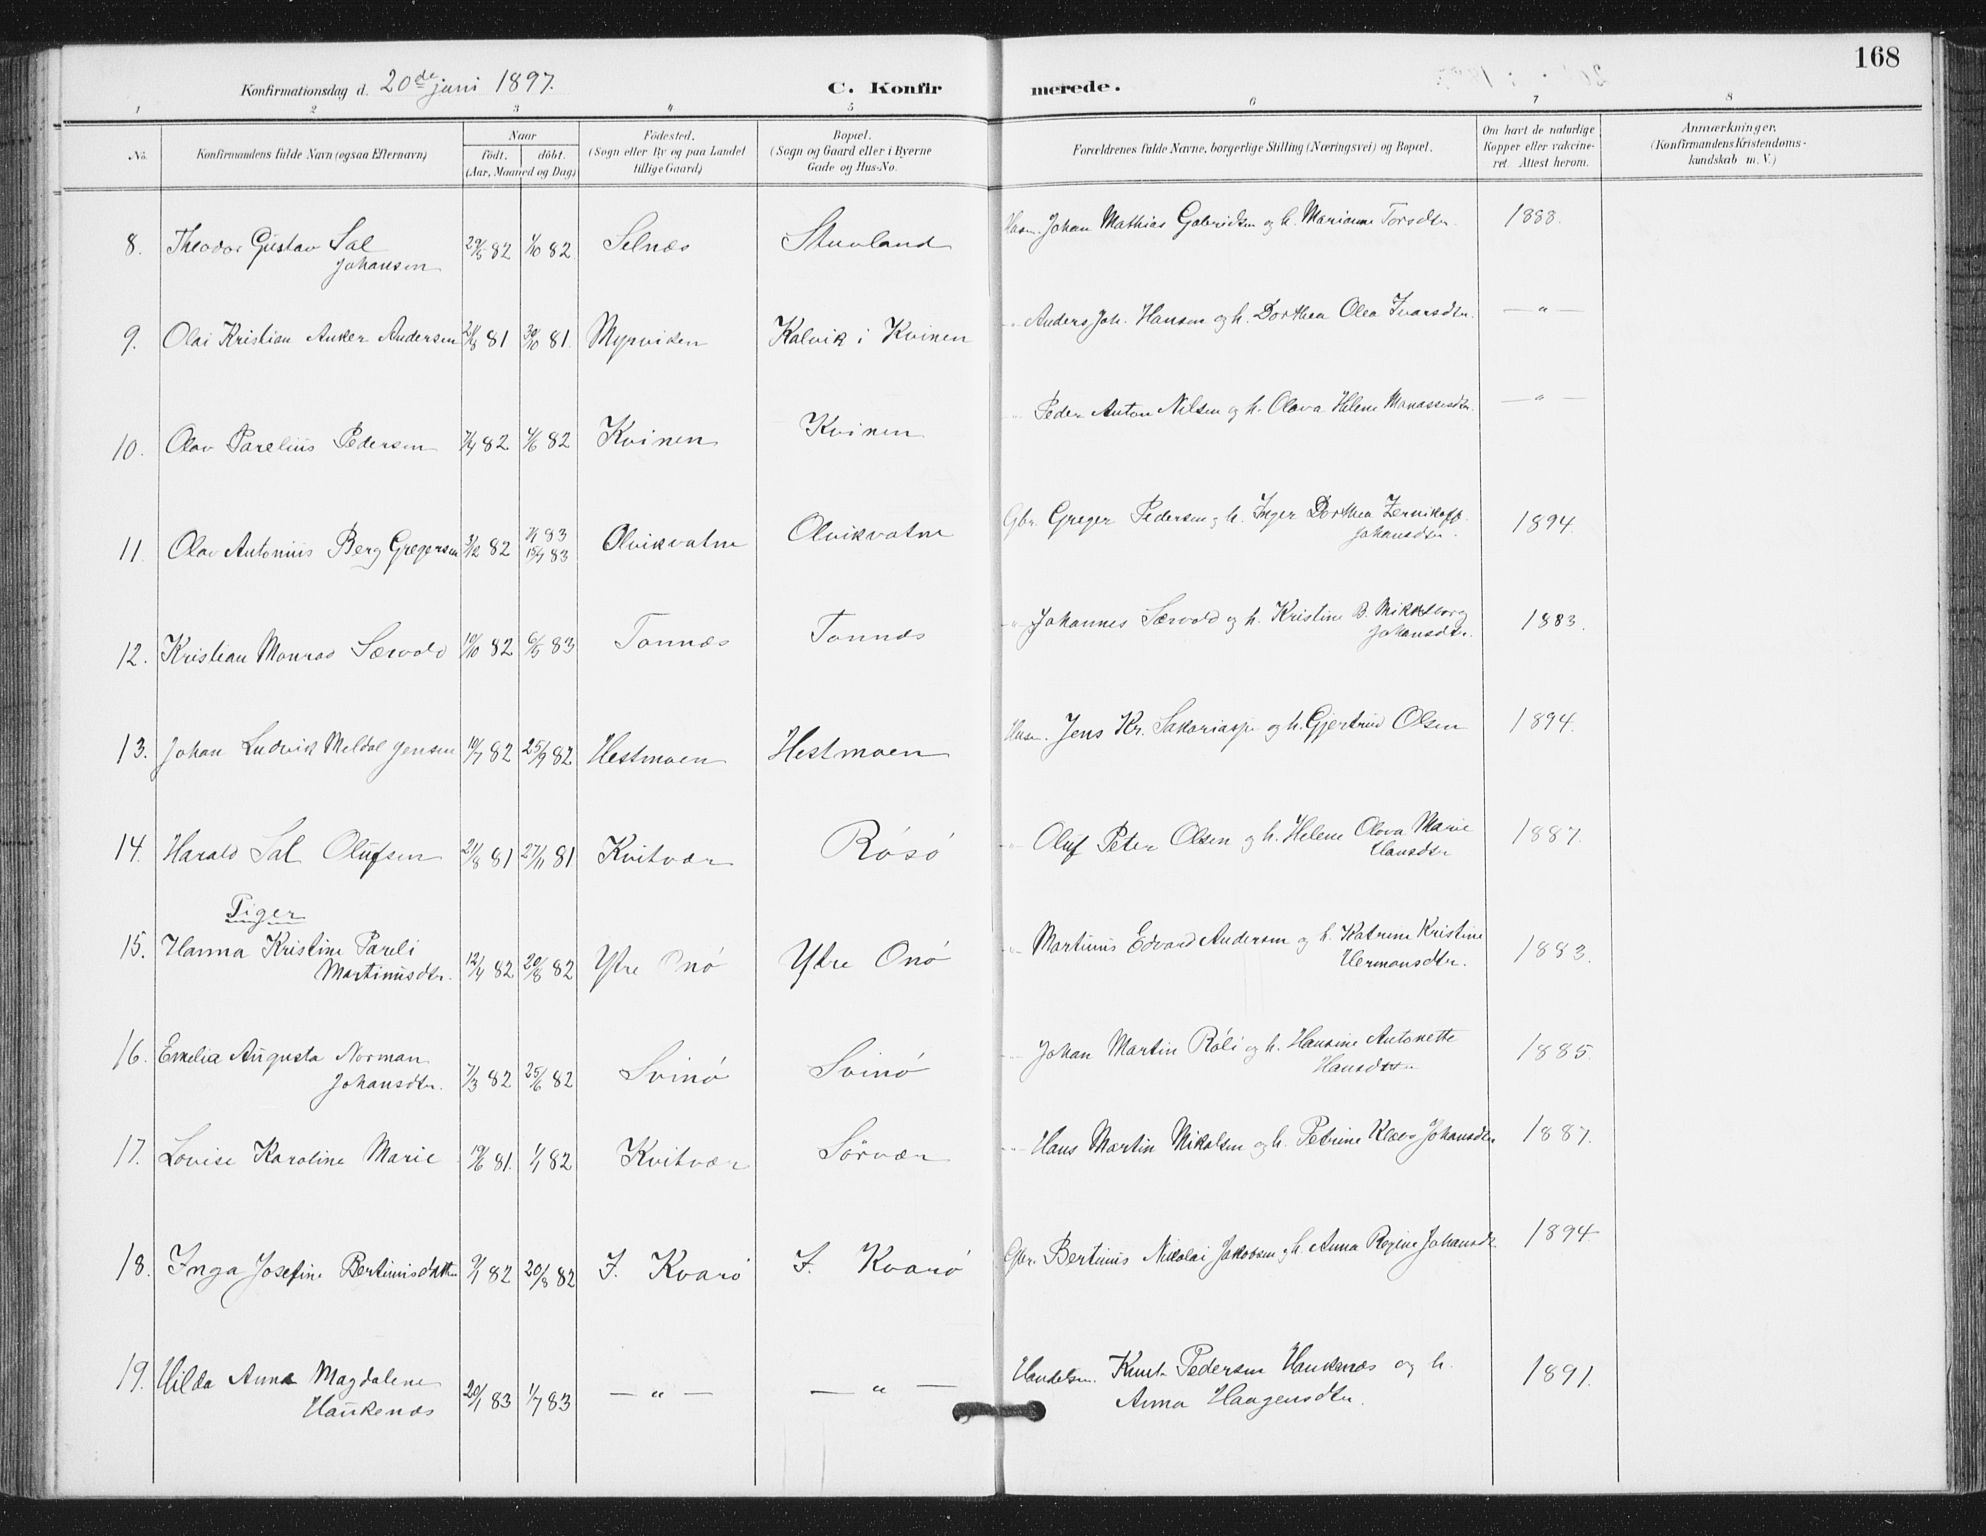 168
Konfirmationsdag d. 20de juni 1897.
C. Konfirmerede.
1 2 3 4 5 6 7 8
No. Konfirmandens fulde Navn (ogsaa Efternavn) Naar født. døbt. (Aar, Maaned og Dag) Fødested. (Sogn eller By og paa Landet tillige Gaard) Bopæl. (Sogn og Gaard eller i Byerne Gade og Hus-No. Forældrenes fulde Navne, borgerlige Stilling (Næringsvei) og Bopæl. Om havt de naturlige Kopper eller vakcineret. Attest herom. Anmærkninger. (Konfirmandens Kristendomskundskab m. V.)
8. Theodor Gustav Sal Johansen 29/5 82 1/10 82 Selnæs Stuvland Husm. Johan Mathias Gabrielsen og h. Marianne Torsdtr. 1888.
9. Olai Kristian Anker Andersen 21/8 81 30/10 81 Myrviken Kalvik i Kvinen -"- Anders Joh. Hansen og h. Dorthea Olea Ivarsdtr. —"—
10. Olav Parelius Pedersen 7/4 82 4/6 82 Kvinen Kvinen -"- Peder Anton Nilsen og h. Olava Helene Manassesdtr. —"—
11. Olav Antonius Berg Gregersen 3/12 82 1/1 83 15/7 83 Olvikvatne Olvikvatne Gbr. Greger Pedersen og h. Inger Dorthea Zernikopp Johansdtr. 1894.
12. Kristian Monrad Særvold 19/10 82 6/5 83 Tonnæs Tonnæs -"- Johannes Særvold og h. Kristine B. Mikkelborg Johansdtr. 1883.
13. Johan Ludvik Meldal Jensen 10/7 82 25/9 82 Hestmoen Hestmoen Husm. Jens Kr. Sakariass. og h. Gjertrud Olsen 1894.
14. Harald Sal Olufsen 21/8 81 27/11 81 Kvitvær Røsø -"- Oluf Peter Olsen og h. Helene Olova Marie Hansdtr 1887.
Piger
15. Hanna Kristine Pareli Martinusdtr. 12/4 82 20/8 82 Ytre Onø Ytre Onø -"- Martinus Edvard Andersen og h. Katrine Kristine Hermansdtr. 1883.
16. Emelia Augusta Norman Johansdtr. 7/3 82 25/6 82 Svinø Svinø -"- Johan Martin Røli og h. Hansine Antonette Hansdtr 1885.
17. Lovise Karoline Marie 19/6 81. 1/1 82 Kvitvær Sørvær -"- Hans Martin Nikolsen og h. Petrine Johansdtr 1887.
18. Inga Josefine Bertinusdatter 9/1 82 20/8 82 I. Kvarø I. Kvarø Gbr. Bertinus Nikolai Jakobsen og h. Anna Regine Johansdtr 1894
19. Hilda Anna Magdalene Haukenæs 20/1 83 1/7 83 —"— —"— Handelsm. Knut Pedersen Haukenæs og h. Anna Haagensdtr. 1891.